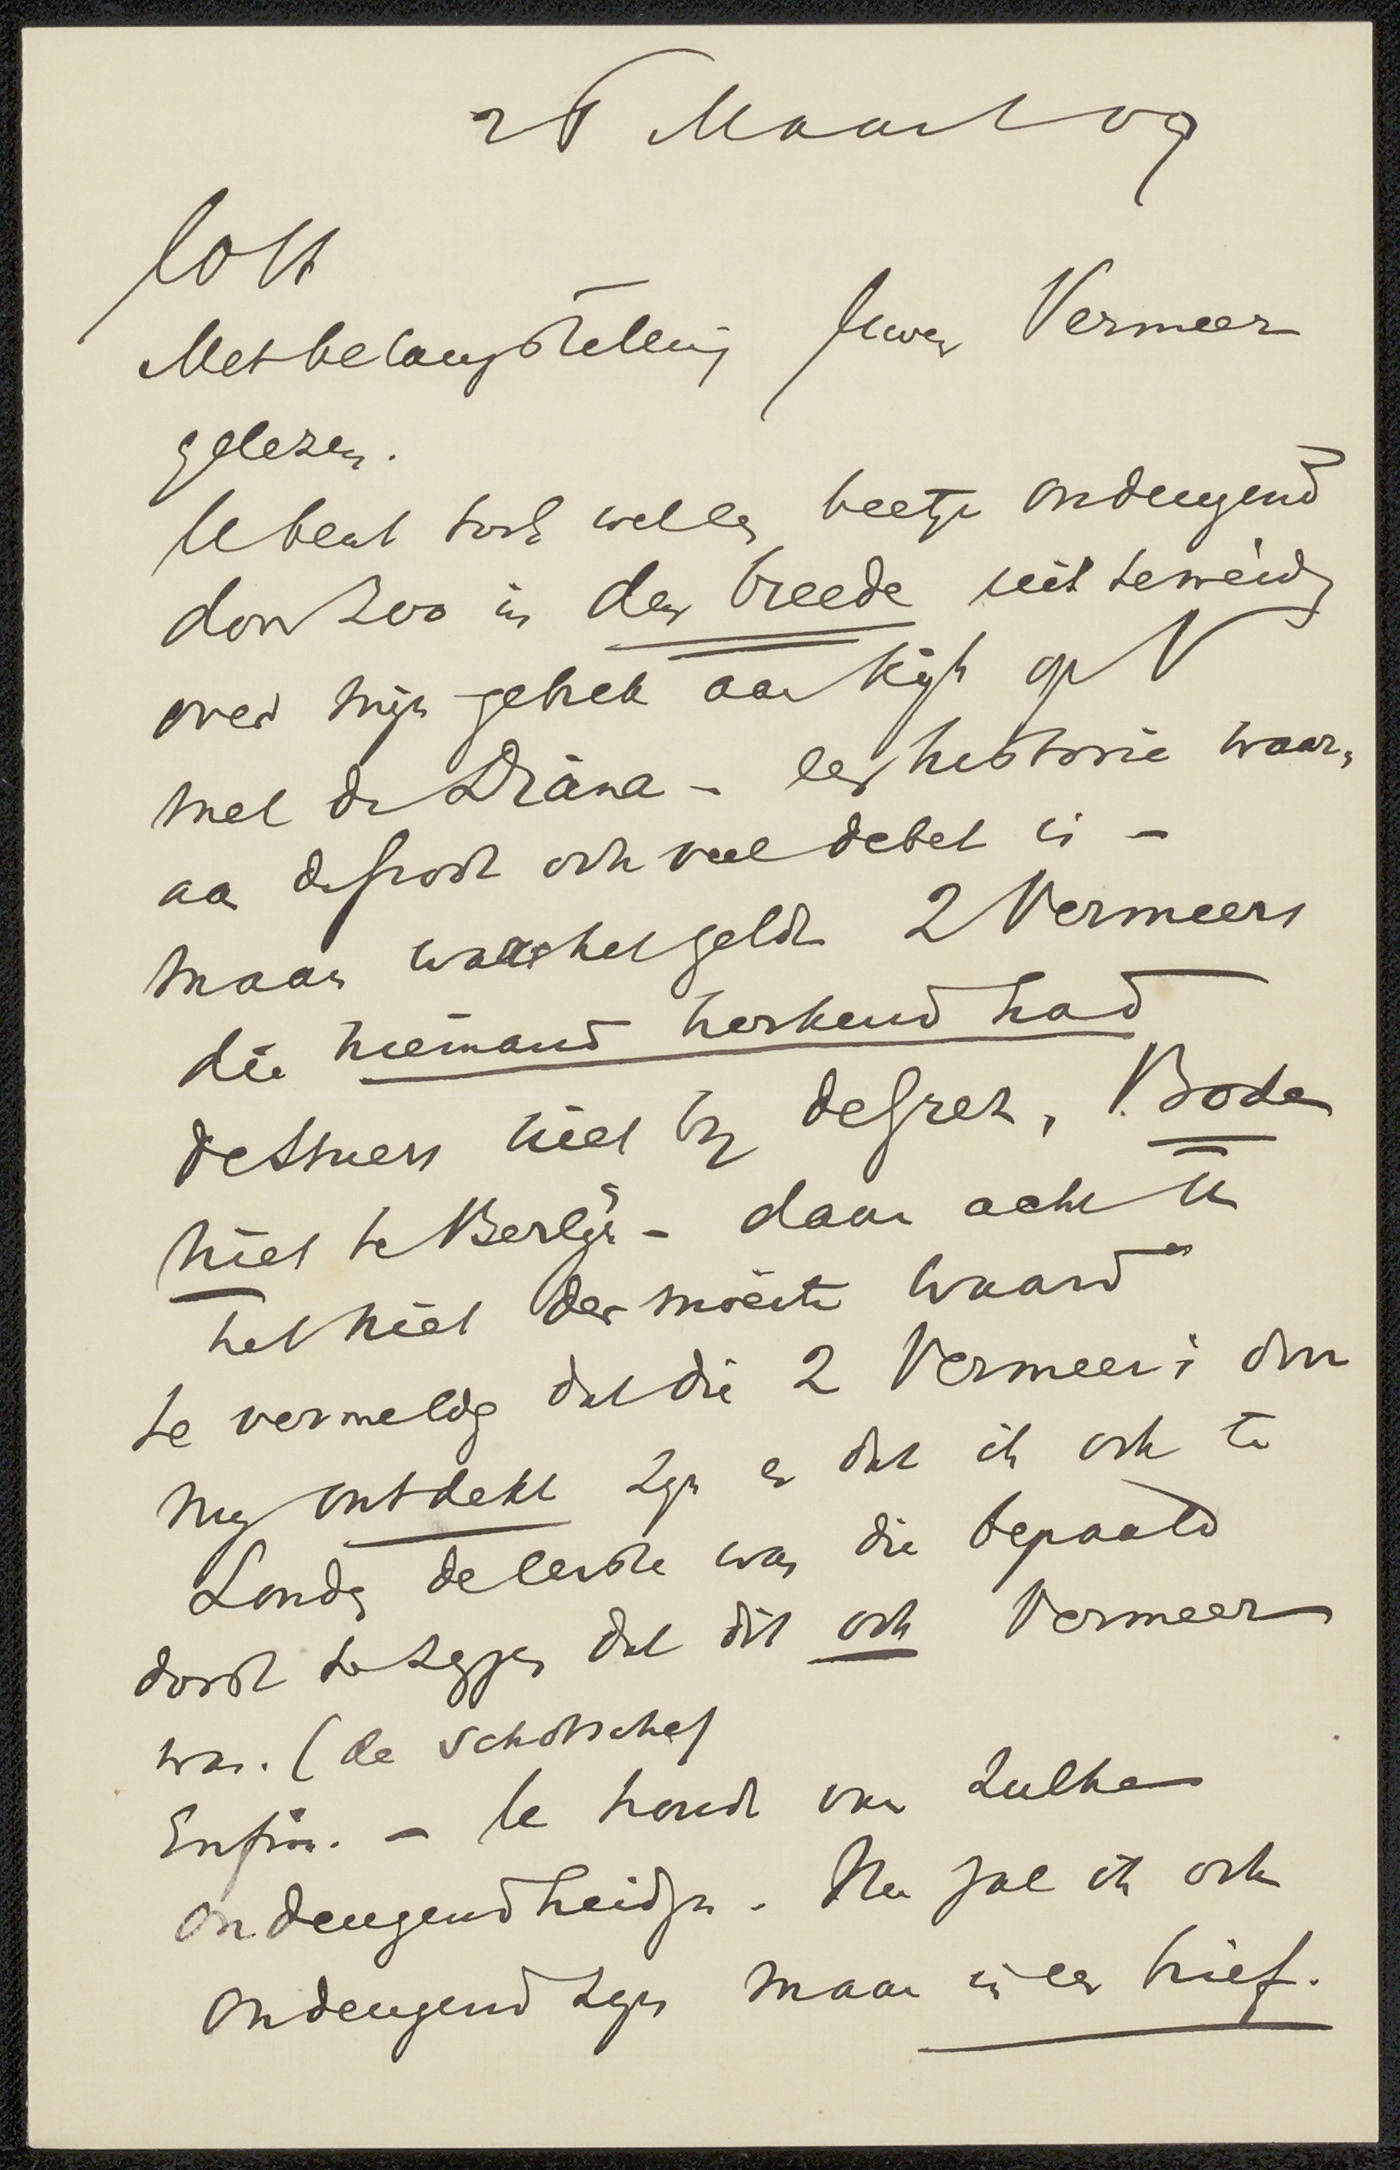 Maart 09
Met belangstelling Uwen Vermeer
gelezen.
U bent toch wel een beetje ondeugend
door zoo in den breede uit te weiden
over mijn gebrek aan kijk op V
met de Diana – een historie waar-
aan de Groot ook veel debet is –
maar waar het geldt 2 Vermeers
die niemand herkend had
de Stuers niet bij de Grez, Bode
niet te Berlijn – daar acht U
het niet der moeite waard
te vermelden dat die 2 Vermeers door
mij ontdekt zijn en dat ik ook te
Londen de eerste was die bepaald
dorst te zeggen dat dit ook Vermeer
was. (de Schotsche)
Enfin. – U houdt van zulke
ondeugendheidjen. Nu zal ik ook
ondeugend zijn maar in een brief.